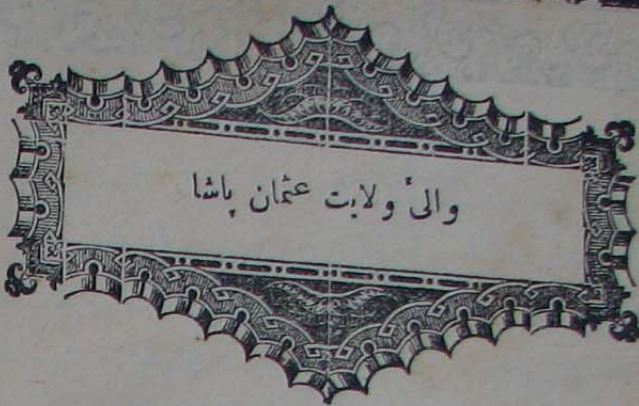 والئ ولايت عثمان پاشا